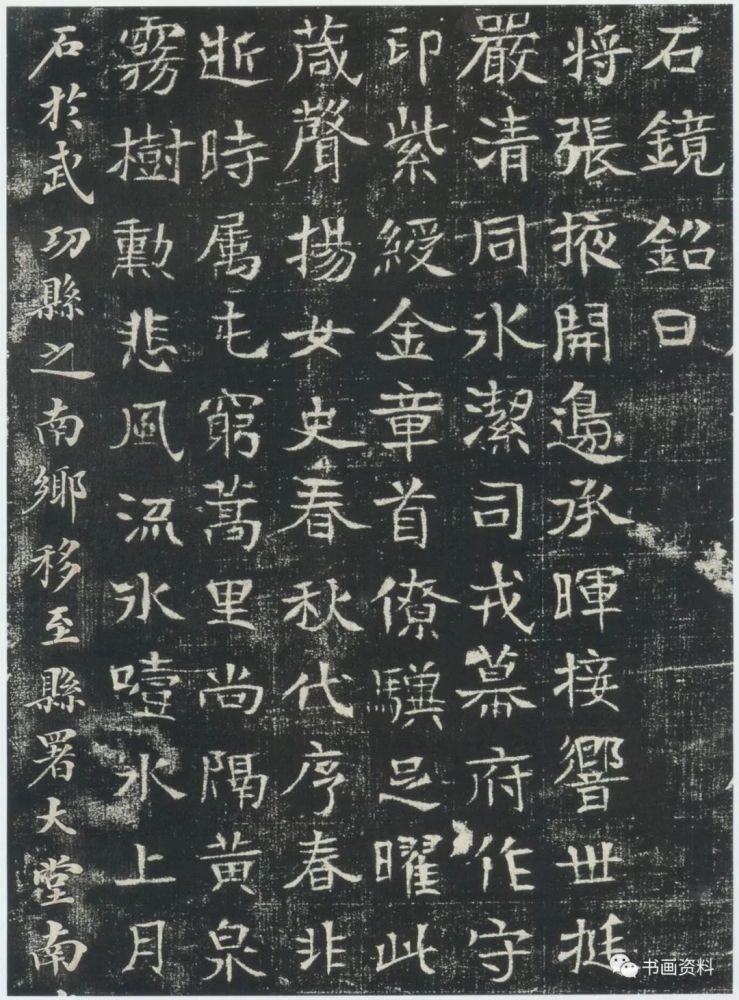 石鏡銘曰
将張掖開邊承暉接響世挺
嚴清同水潔司戎幕府作守
印紫綬金章首僚驥足曜此
葴聲揚女史春秋代序春非
逝時属屯窮蒿里尚隔黄泉
霧樹勳悲風流水噎水上月
石於武功縣之南鄉移至縣署大堂南
书画资料